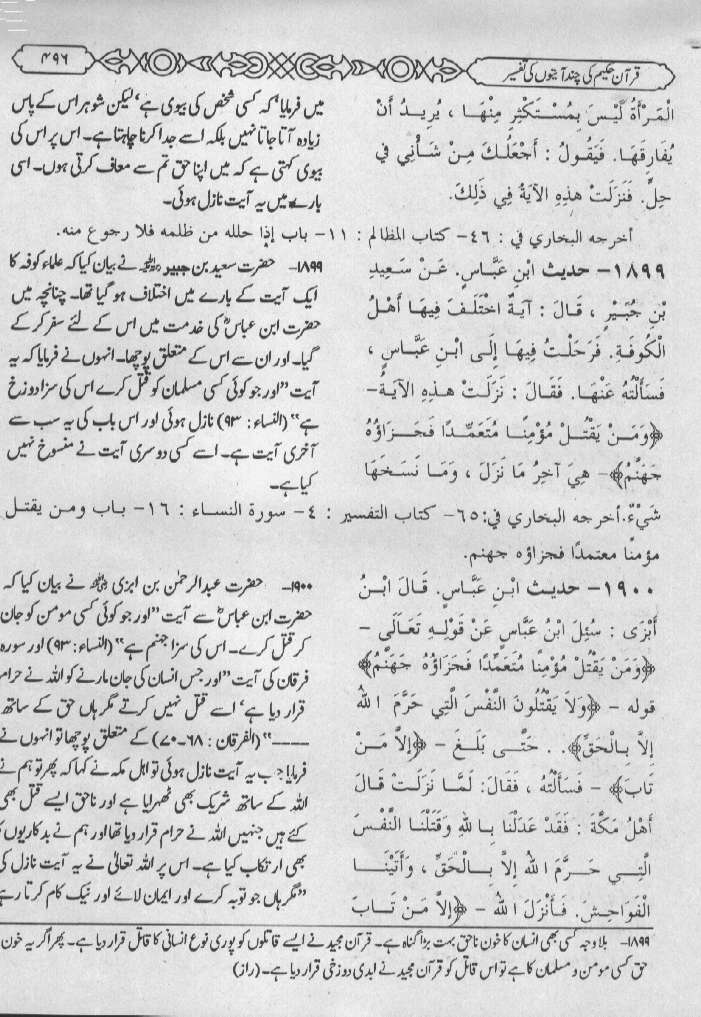 قرآن حکیم کی چند آیتوں کی تفسیر
۴۹۶
الْمَرْأَةُ لَيْسَ بِمُسْتَكْثِرٍ مِنْهَا ، يُرِيدُ أَنْ
يُفَارِقَهَا. فَيَقُولُ : أَجْعَلُكَ مِنْ شَأْنِي فِي
حِلٍّ. فَنَزَلَتْ هَذِهِ الآيَةُ فِي ذَلِكَ.
میں فرمایا‘ کہ کسی شخص کی بیوی ہے‘ لیکن شوہر اس کے پاس
زیادہ آتا جاتا نہیں بلکہ اسے جدا کرنا چاہتا ہے۔ اس پر اس کی
بیوی کہتی ہے کہ میں اپنا حق تم سے معاف کرتی ہوں۔ اسی
بارے میں یہ آیت نازل ہوئی۔
أخرجه البخاري في : ٤٦- كتاب المظالم : ١١- باب إذا حلله من ظلمه فلا رجوع منه.
١٨٩٩- حديث ابْنِ عَبَّاسٍ. عَنْ سَعِيدِ
بْنِ جُبَيْرٍ ، قَالَ : آيَةٌ اخْتَلَفَ فِيهَا أَهْلُ
الْكُوفَةِ. فَرَحَلْتُ فِيهَا إِلَى ابْنِ عَبَّاسٍ ،
فَسَأَلْتُهُ عَنْهَا. فَقَالَ : نَزَلَتْ هذِهِ الآيَةُ-
﴿وَمَنْ يَقْتُلْ مُؤْمِنًا مُتَعَمِّدًا فَجَزَاؤُهُ
جَهَنَّمُ﴾- هِيَ آخِرُ مَا نَزَلَ ، وَمَا نَسَخَهَا
۱۸۹۹- حضرت سعید بن جبیر رضی اللہ عنہ نے بیان کیا کہ علماء کوفہ کا
ایک آیت کے بارے میں اختلاف ہو گیا تھا۔ چنانچہ میں
حضرت ابن عباسؓ کی خدمت میں اس کے لئے سفر کر کے
گیا۔ اور ان سے اس کے متعلق پوچھا۔ انہوں نے فرمایا کہ یہ
آیت ”اور جو کوئی کسی مسلمان کو قتل کرے اس کی سزا دوزخ
ہے“ (النساء : ۹۳) نازل ہوئی اور اس باب کی یہ سب سے
آخری آیت ہے۔ اسے کسی دوسری آیت نے منسوخ نہیں
کیا ہے۔
شَيْءٌ.أخرجه البخاري في:٦٥- كتاب التفسير : ٤- سورة النساء : ١٦- باب ومن يقتل
مؤمنًا معتمدًا فجزاؤه جهنم.
١٩٠٠- حديث ابْنِ عَبَّاسٍ. قَالَ ابْنُ
أَبْزَى : سُئِلَ ابْنُ عَبَّاسٍ عَنْ قَوْلِهِ تَعَالَى -
﴿وَمَنْ يَقْتُلْ مُؤْمِنًا مُتَعَمِّدًا فَجَزَاؤُهُ جَهَنَّمُ﴾
قوله - ﴿وَلاَ يَقْتُلُونَ النَّفْسَ الَّتِي حَرَّمَ اللهُ
إِلاَّ بِالْحَقِّ﴾. . حَتَّى بَلَغَ - ﴿إِلاَّ مَنْ
تَابَ﴾ - فَسَأَلْتُهُ ، فَقَالَ: لَمَّا نَزَلَتْ قَالَ
أَهْلُ مَكَّةَ : فَقَدْ عَدَلْنَا بِاللهِ وَقَتَلْنَا النَّفْسَ
الَّتِي حَرَّمَ اللهُ إِلاَّ بِالْحَقِّ ، وَأَتَيْنَا
الْفَوَاحِشَ. فَأَنْزَلَ اللهُ - ﴿إِلاَّ مَنْ تَابَ
۱۹۰۰- حضرت عبدالرحمٰن بن ابزی رضی اللہ عنہ نے بیان کیا کہ
حضرت ابن عباسؓ سے آیت ”اور جو کوئی کسی مومن کو جان
کر قتل کرے۔ اس کی سزا جہنم ہے“ (النساء : ۹۳) اور سورہ
فرقان کی آیت ”اور جس انسان کی جان مارنے کو اللہ نے حرام
قرار دیا ہے‘ اسے قتل نہیں کرتے مگر ہاں حق کے ساتھ
ـــــ“ (الفرقان : ۶۸-۷۰) کے متعلق پوچھا تو انہوں نے
فرمایا جب یہ آیت نازل ہوئی تو اہل مکہ نے کہا کہ پھر تو ہم نے
اللہ کے ساتھ شریک بھی ٹھہرایا ہے اور ناحق ایسے قتل بھی
کئے ہیں جنہیں اللہ نے حرام قرار دیا تھا اور ہم نے بدکاریوں کا
بھی ارتکاب کیا ہے۔ اس پر اللہ تعالیٰ نے یہ آیت نازل کی
”مگر ہاں جو توبہ کرے اور ایمان لائے اور نیک کام کرتا رہے
۱۸۹۹- بلا وجہ کسی بھی انسان کا خون ناحق بہت بڑا گناہ ہے۔ قرآن مجید نے ایسے قاتلوں کو پوری نوع انسانی کا قاتل قرار دیا ہے۔ پھر اگر یہ خون
حق کسی مومن و مسلمان کا ہے تو اس قاتل کو قرآن مجید نے ابدی دوزخی قرار دیا ہے۔ (راز)